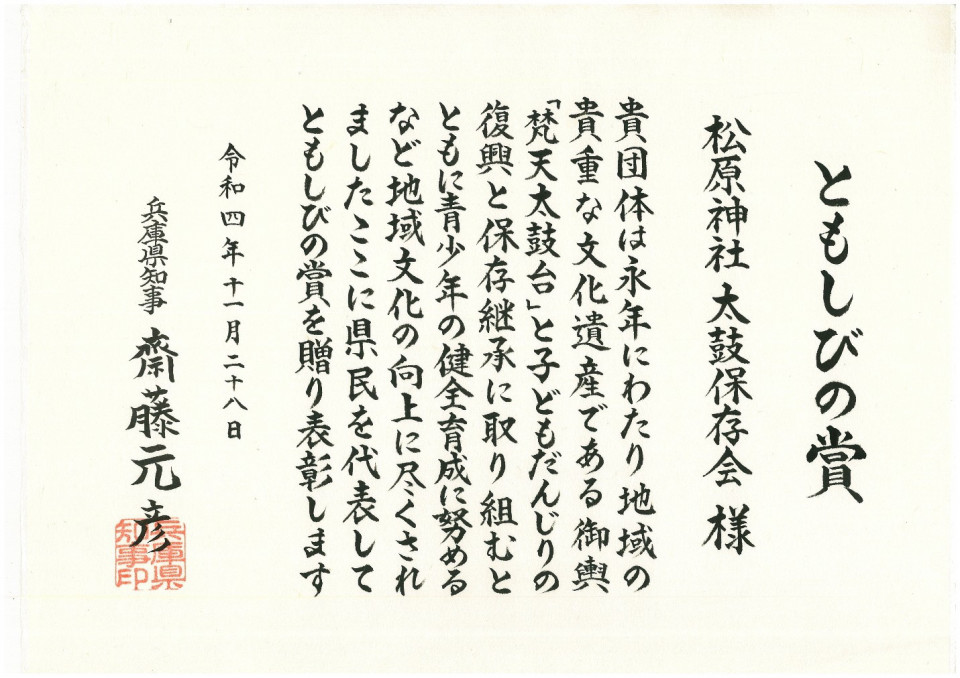 ともしびの賞
松原神社 太鼓保存会 様
貴団体は永年にわたり地域の
貴重な文化遺産である御輿
「梵天太鼓台」と子どもだんじりの
復興と保存継承に取り組むと
ともに青少年の健全育成に努める
など地域文化の向上に尽くされ
ましたここに県民を代表して
ともしびの賞を贈り表彰します
令和四年十一月二十八日
兵庫県知事 齋藤元彦
兵庫県
知事印